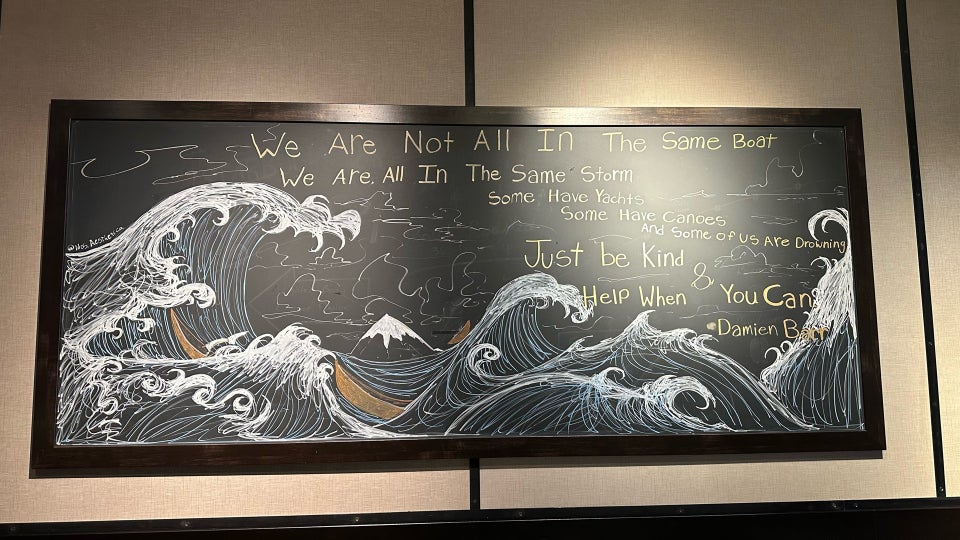 We Are Not All In The Same Boat
We Are. All In The Same Storm
Some Have Yachts
Some Have Canoes
And Some of Us Are Drowning
Just be Kind
&
Help When You Can
-Damien Barr